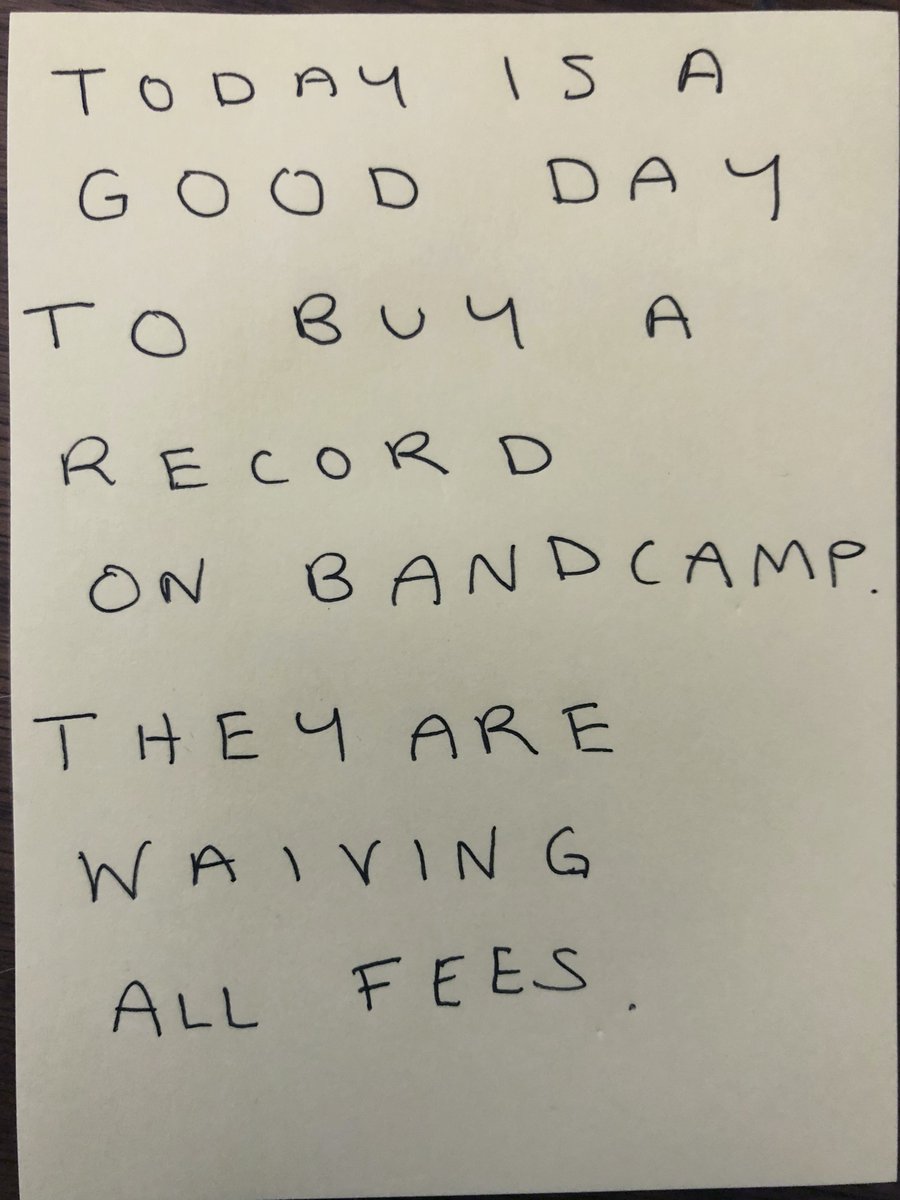 TODAY IS A
GOOD DAY
TO BUY A
RECORD
ON BANDCAMP.
THEY ARE
WAIVING
ALL FEES.